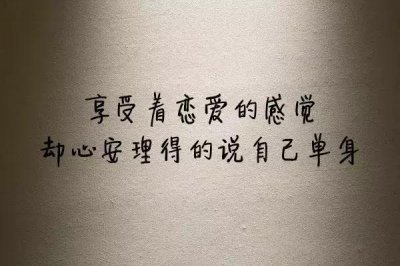 享受着恋爱的感觉
却心安理得的说自己单身